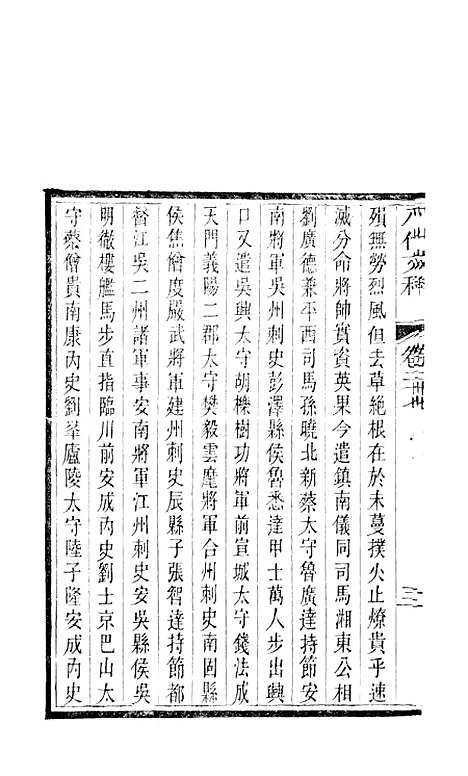 殞無勞烈風但去草絕根在於未蔓撲火止燎貴乎速
滅分命將帥實資英果今遣鎮南儀同司馬湘東公相
劉廣德兼平西司馬孫曉北新蔡太守魯廣達持節安
南將軍吳州刺史彭澤縣侯魯悉達甲士萬人步出興
口又遣吳興太守胡櫟樹功將軍前宣城太守錢法成
天門義陽二郡太守樊毅雲麾將軍合州刺史南固縣
侯焦僧度嚴武將軍建州刺史辰縣子張智達持節都
督江吳二州諸軍事安南將軍江州刺史安吳縣侯吳
明徹樓艦馬步直指臨川前安成內史劉士京巴山太
守蔡僧貴南康內史劉峯廬陵太守陸子隆安成內史